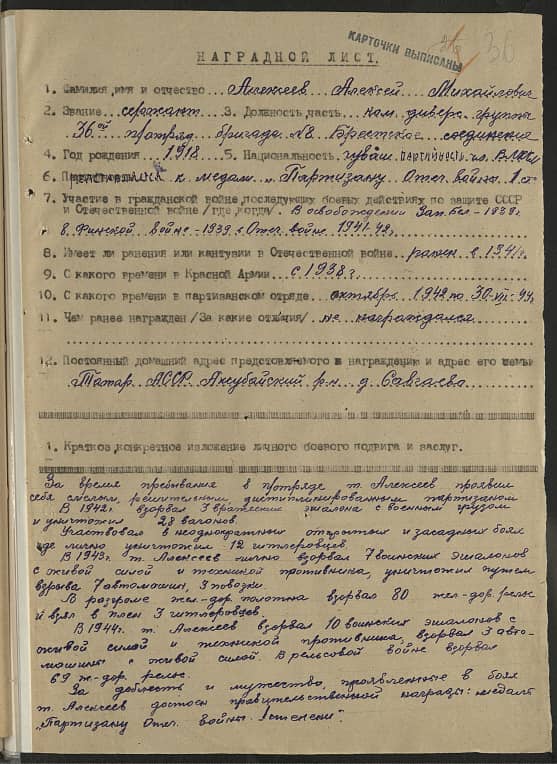 КАРТОЧКИ ВЫПИСАНЫ
36
НАГРАДНОЙ ЛИСТ.
1. Фамилия, имя и отчество Алексеев Алексей Михайлович
2. Звание сержант 3. Должность, часть ком. диверс. группы
36ой п/отряд бригада №8 Брестское соединение
4. Год рождения 1918 5. Национальность чуваш партийность чл. ВЛКСМ
6. к медали „Партизану Отеч. войны 1 ст.
7. Участие в гражданской войне, последующих боевых действиях по защите СССР
и Отечественной войне /где, когда/. В освобождении Зап. бел-1939г.
в финской войне-1939г. Отеч. войне 1941-42г.
8. Имеет ли ранения или кантузии в Отечественной войне ранен в 1941г.
9. С какого времени в Красной Армии с 1938г
10. С какого времени в партизанском отряде октябрь 1942 по 30-VII-44г.
11. Чем ранее награжден /За какие отличия/ не награждался
12. Постоянный домашний адрес предстовляемого к награждению и адрес его семьи
Татар. АССР. Аксубайский р-н д. Савгаево
1. Краткое, конкретное изложение личного боевого подвига и заслуг.
За время пребывания в п/отряде т. Алексеев проявил
себя смелым, решительным, дисциплинированным партизаном
В 1942г. взорвал 3 вражеских эшалона с военным грузом
и уничтожил 28 вагонов.
Участвовал в неоднократных открытых и засадных боях
где лично уничтожил 12 гитлеровцев.
В 1943г. т. Алексеев лично взорвал 7 воинских эшалонов
с живой силой и техникой противника, уничтожил путем
взрыва 7 автомашин, 3 повозки.
В разгроме жел-дор. полотна взорвал 80 жел-дор. рельс
и взял в плен 3 гитлеровцев.
В 1944г. т. Алексеев взорвал 10 воинских эшалонов с
живой силой и техникой противника, взорвал 3 авто-
машины с живой силой. В рельсовой войне взорвал
69 ж-дор. рельс.
За доблесть и мужество, проявленные в боях
т. Алексеев достоен правительственной награды: медали
„Партизану Отеч. войны I степени".